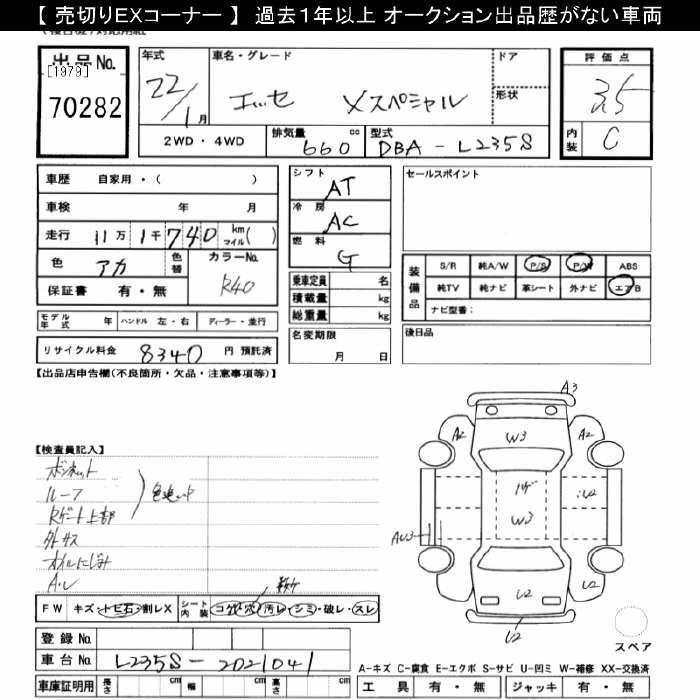 【 売切りEXコーナー 】 過去1年以上 オークション出品歴がない車両
出品No. [1979] 70282
年式 22/1月
車名・グレード エッセ Xスペシャル
ドア
形状
2WD・4WD
排気量 660 cc
型式 DBA-L235S
評価点 3.5
内装 C
車歴 自家用・( )
車検 年 月
走行 11万1千740 km マイル( )
色 アカ 色替
カラーNo. R40
保証書 有・無
モデル年式 年 ハンドル 左・右 ディーラー・並行
リサイクル料金 8340 円 預託済
シフト AT
冷房 AC
燃料 G
乗車定員 名
積載量 kg
総重量 kg
名変期限 月 日
セールスポイント
装備品 S/R 純A/W P/S P/W ABS
純TV 純ナビ 革シート 外ナビ エアB
ナビ型番:
後日品
【出品店申告欄(不良箇所・欠品・注意事項等)】
【検査員記入】
ボンネット
ルーフ
Rゲート上部
外サス
オイルにじみ
A・U
FW キズ・トビ石・割レX
シート内装 コゲ・穴・汚レ・シミ・破レ・スレ
A3
A2 W3 A2
W3
U2
U2 U2
U2
スペア
登録No.
車台No. L235S-2021041
車庫証明用 長さ cm 幅 cm 高さ cm
A-キズ C-腐食 E-エクボ S-サビ U-凹ミ W-補修 XX-交換済
工具 有・無 ジャッキ 有・無